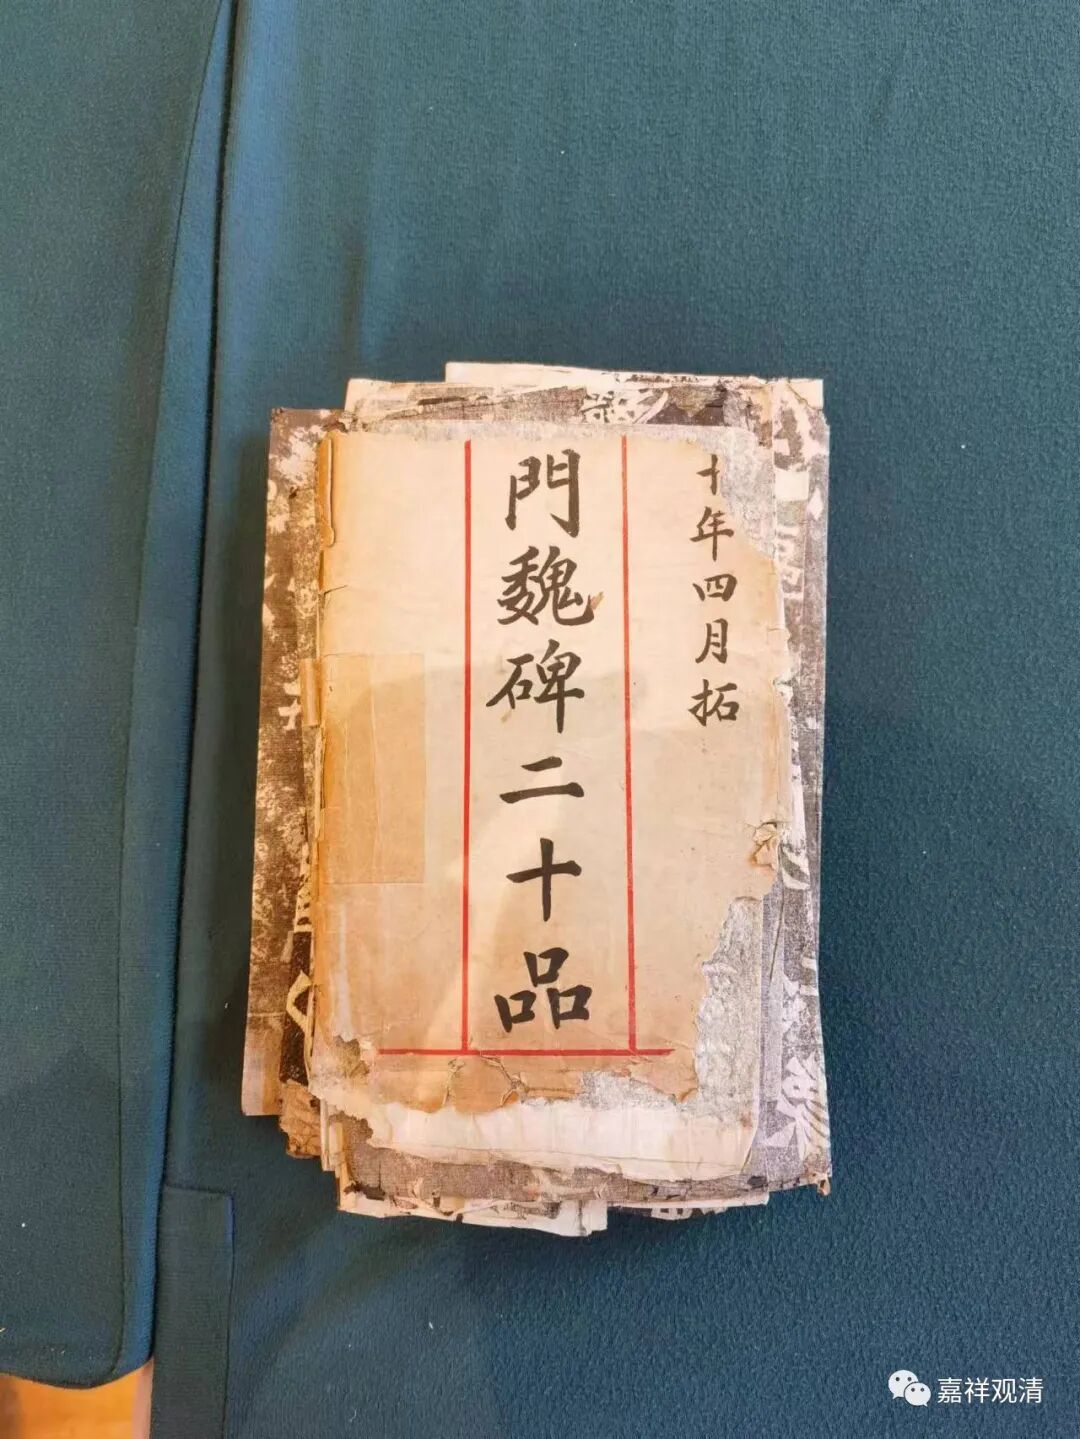 十年四月拓
門魏碑二十品
嘉祥观清